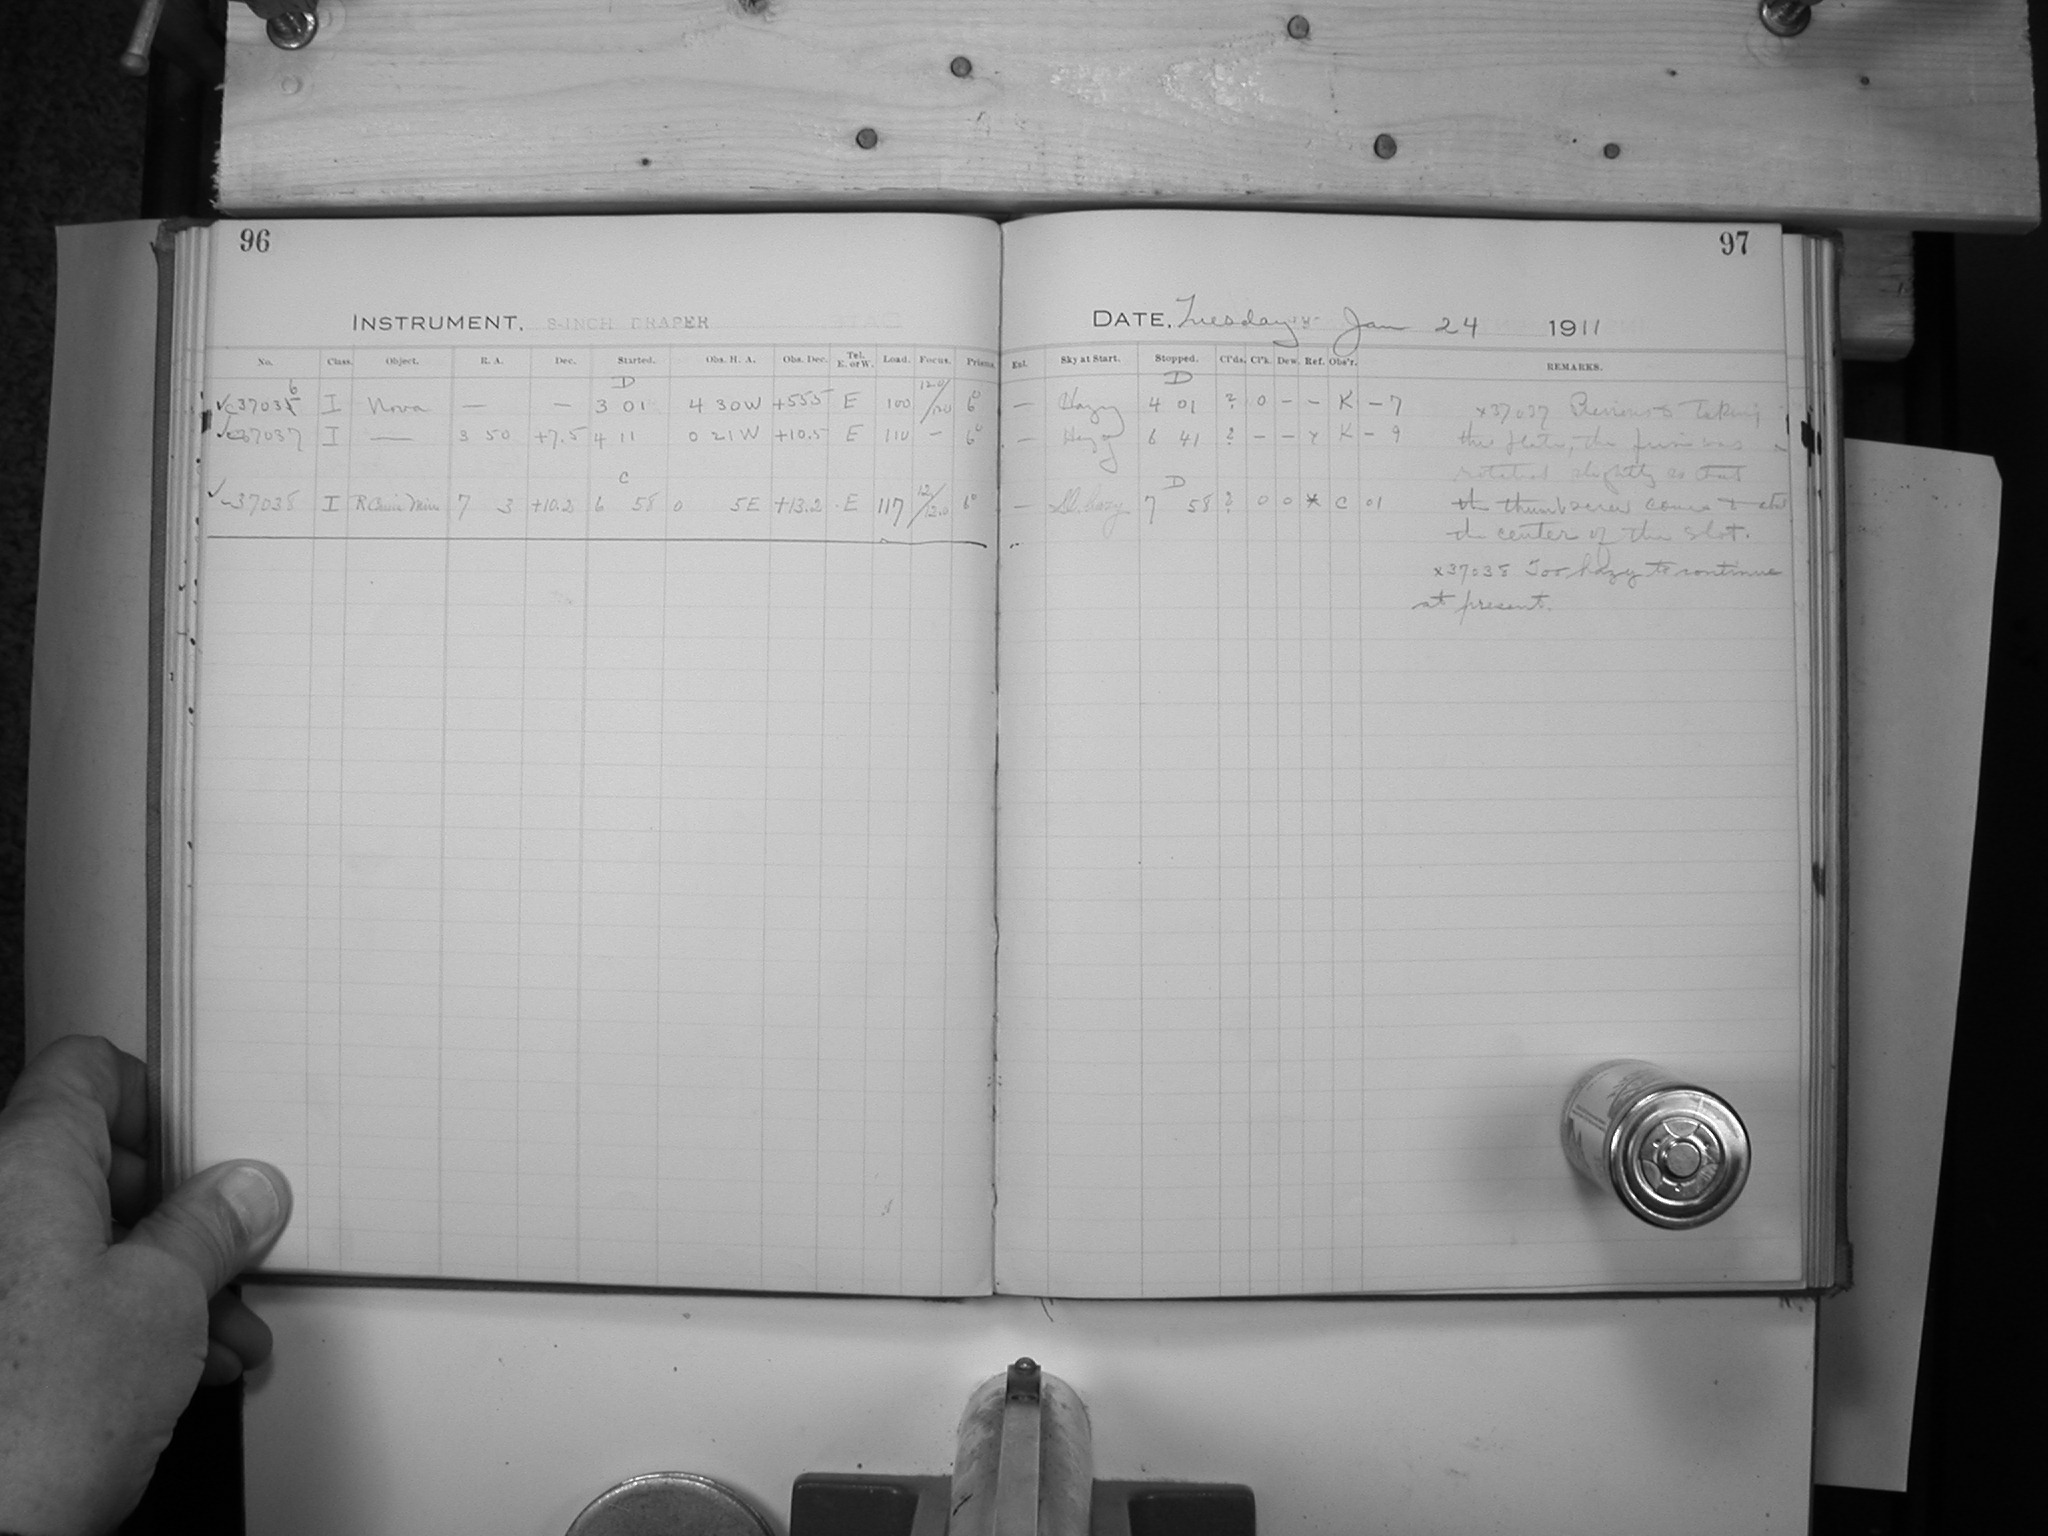 96
INSTRUMENT, 8-INCH DRAPER
No. Class. Object. R. A. Dec. Started. Obs. H. A. Obs. Dec. Tel. E. or W. Load. Focus. Prisms.
D
✓c37036 I Nova — — 3 01 4 30W +555 E 100 12.0/12.0 6°
✓c37037 I — 3 50 +7.5 4 11 0 21W +10.5 E 110 — 6°
C
✓c37038 I R Canis Min 7 3 +10.2 6 58 0 5E +13.2 E 117 12/12.0 6°
97
DATE, Tuesday Jan 24 1911
Ent. Sky at Start. Stopped. Cl'ds. Cl'k. Dew. Ref. Obs'r. REMARKS.
D
— Hazy 4 01 ? 0 – – K – 7
— Hazy 6 41 ? – – x K – 9
D
— Sl. hazy 7 58 ? 0 0 * C 01
x37037 Previous to taking
the plate, the prism was
rotated slightly so that
the thumbscrew comes
the center of the slot.
x37038 Too hazy to continue
at present.